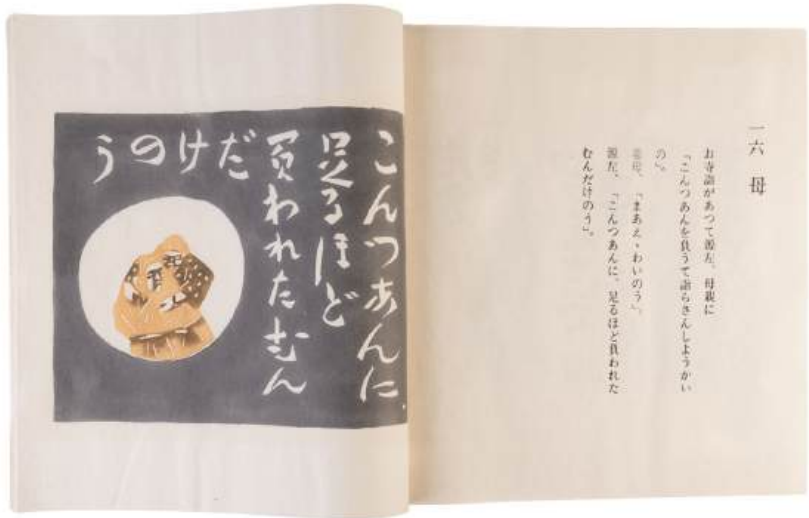 一六 母
お寺詣があつて源左、母親に
「こんつあんを負うて詣らさんしようかい
の」。
老母、「まあえゝわいのう」。
源左、「こんつあんに、足るほど負われた
むんだけのう」。
こんつあんに、
足るほど
負われたむん
だけのう